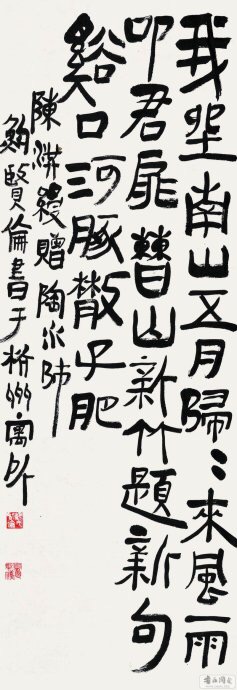 我坐南山五月歸〻來風雨
叩君扉曹山新竹題新句
谿口河豚散子肥
陳洪綬贈陶水師
鮑賢倫書于杭州寓所